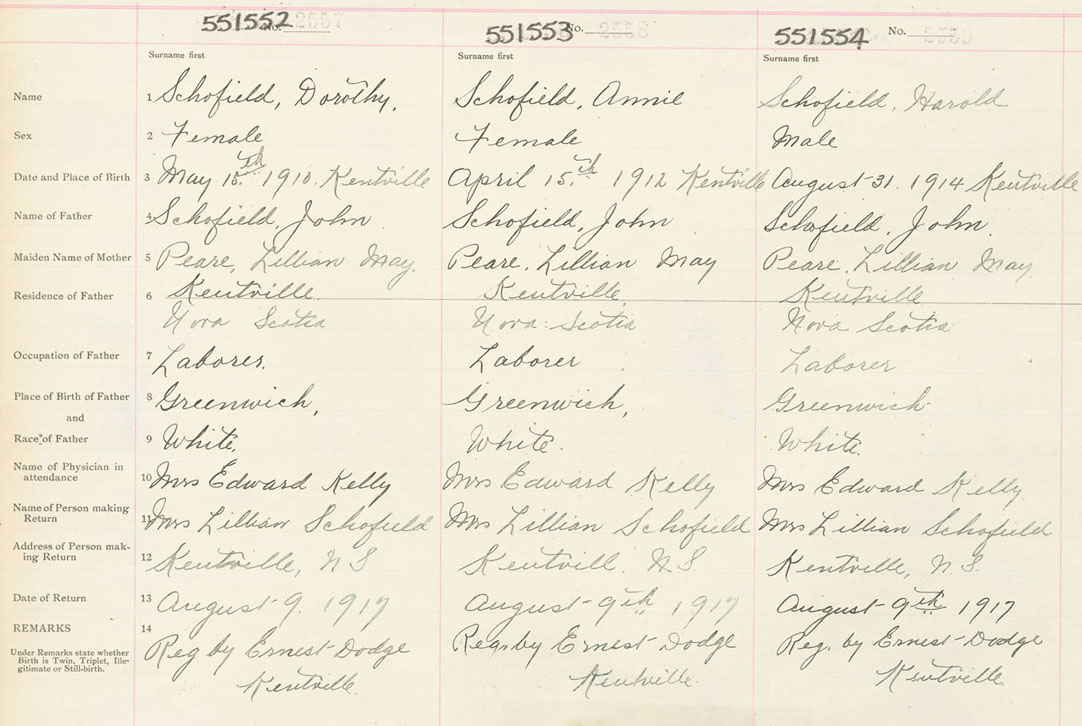 551552 No. 2557 551553 No. 2558 551554 No. 2559
Surname first Surname first Surname first
Name 1 Schofield, Dorothy, Schofield, Annie Schofield, Harold
Sex 2 Female Female Male
Date and Place of Birth 3 May 15th 1910. Kentville April 15th 1912 Kentville August 31. 1914 Kentville
Name of Father 4 Schofield, John Schofield, John Schofield, John.
Maiden Name of Mother 5 Peare, Lillian May. Peare, Lillian May Peare, Lillian May
Residence of Father 6 Kentville. Kentville, Kentville
Nova Scotia Nova Scotia Nova Scotia
Occupation of Father 7 Laborer. Laborer Laborer
Place of Birth of Father 8 Greenwich, Greenwich, Greenwich
and
Race of Father 9 White. White. White.
Name of Physician in
attendance 10 Mrs Edward Kelly Mrs Edward Kelly Mrs Edward Kelly
Name of Person making
Return 11 Mrs Lillian Schofield Mrs Lillian Schofield Mrs Lillian Schofield
Address of Person mak-
ing Return 12 Kentville, N S Kentvill. N.S. Kentville, N.S.
Date of Return 13 August 9. 1917 August 9th 1917 August 9th 1917
REMARKS 14
Under Remarks state whether
Birth is Twin, Triplet, Ille-
gitimate or Still-birth.
Reg by Ernest Dodge Regs by Ernest Dodge Reg. by Ernest Dodge
Kentville. Kentville. Kentville.